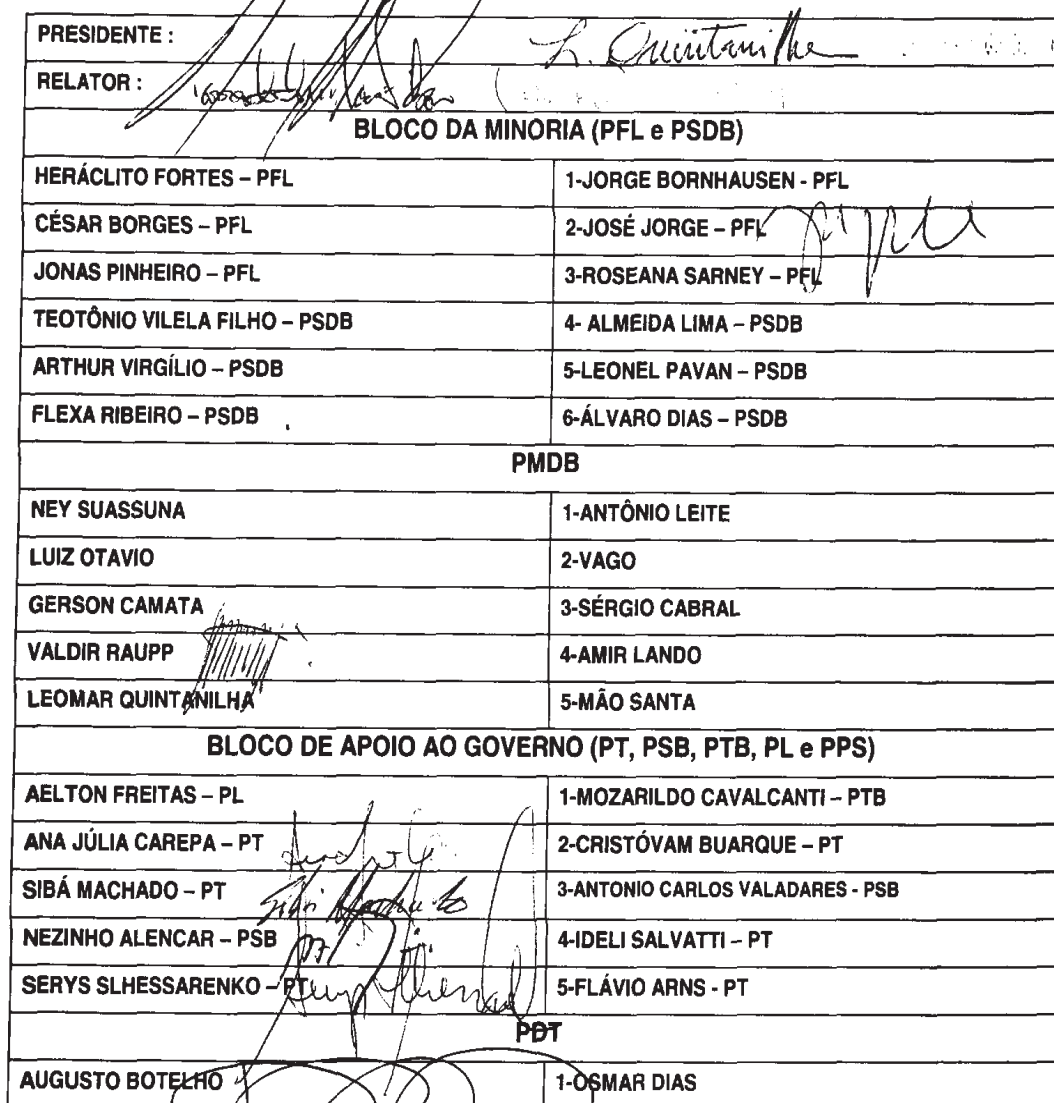 PRESIDENTE :
L. Quintanilha
RELATOR :
BLOCO DA MINORIA (PFL e PSDB)
HERÁCLITO FORTES – PFL 1-JORGE BORNHAUSEN - PFL
CÉSAR BORGES – PFL 2-JOSÉ JORGE – PFL
JONAS PINHEIRO – PFL 3-ROSEANA SARNEY – PFL
TEOTÔNIO VILELA FILHO – PSDB 4- ALMEIDA LIMA – PSDB
ARTHUR VIRGÍLIO – PSDB 5-LEONEL PAVAN – PSDB
FLEXA RIBEIRO – PSDB 6-ÁLVARO DIAS – PSDB
PMDB
NEY SUASSUNA 1-ANTÔNIO LEITE
LUIZ OTAVIO 2-VAGO
GERSON CAMATA 3-SÉRGIO CABRAL
VALDIR RAUPP 4-AMIR LANDO
LEOMAR QUINTANILHA 5-MÃO SANTA
BLOCO DE APOIO AO GOVERNO (PT, PSB, PTB, PL e PPS)
AELTON FREITAS – PL 1-MOZARILDO CAVALCANTI – PTB
ANA JÚLIA CAREPA – PT 2-CRISTÓVAM BUARQUE – PT
SIBÁ MACHADO – PT Sibá Machado 3-ANTONIO CARLOS VALADARES - PSB
NEZINHO ALENCAR – PSB 4-IDELI SALVATTI – PT
SERYS SLHESSARENKO – PT 5-FLÁVIO ARNS - PT
PDT
AUGUSTO BOTELHO 1-OSMAR DIAS